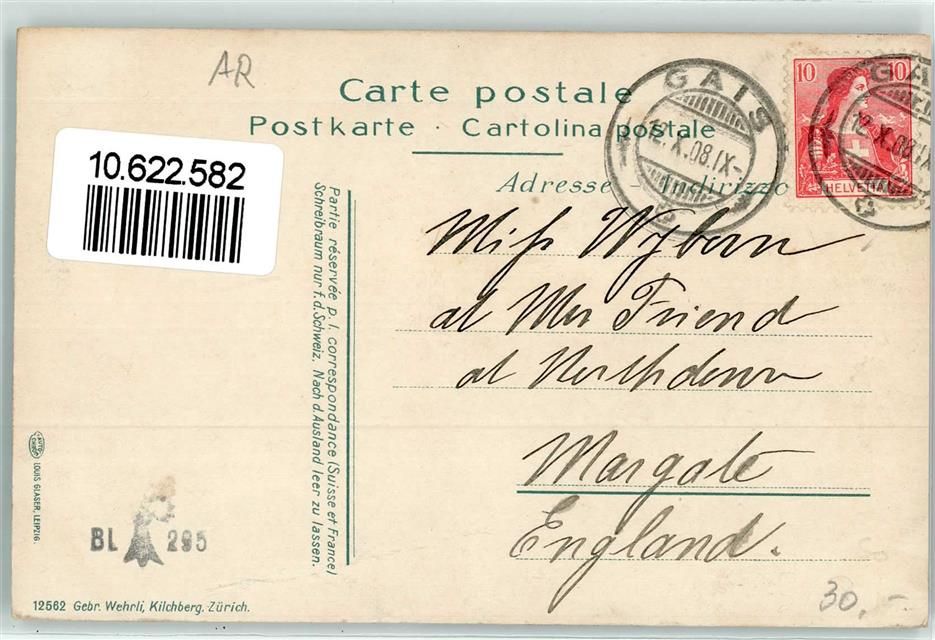 AR
Carte postale
Postkarte · Cartolina postale
Adresse - Indirizzo
10.622.582
GAIS
12.X.08.IX-
10 10
HELVETIA
GA
12.X.08.IX
Partie réservée p. l. correspondance (Suisse et France)
Schreibraum nur f. d. Schweiz. Nach d. Ausland leer zu lassen.
Miss Wyborn
at Mrs Friend
at Northdown
Margate
England.
LOUIS GLASER, LEIPZIG.
BL 295
12562 Gebr. Wehrli, Kilchberg. Zürich.
30,-